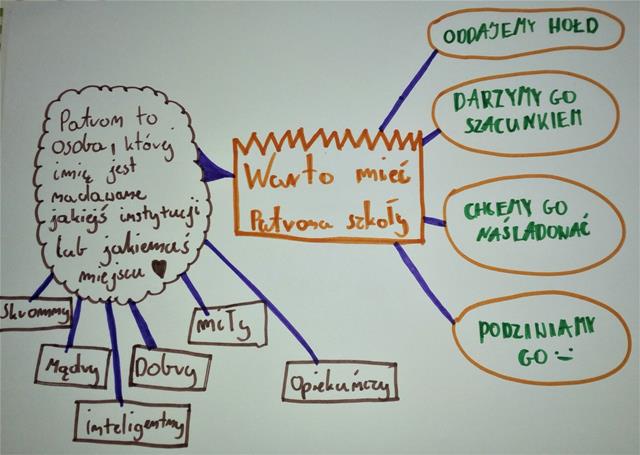 Patron to
osoba, której
imię jest
nadawane
jakiejś instytucji
lub jakiemuś
miejscu
Warto mieć
Patrona szkoły
ODDAJEMY HOŁD
DARZYMY GO
SZACUNKIEM
CHCEMY GO
NAŚLADOWAĆ
PODZINIAMY
GO :-)
Skromny
Mądry
inteligentny
Dobry
miły
Opiekuńczy